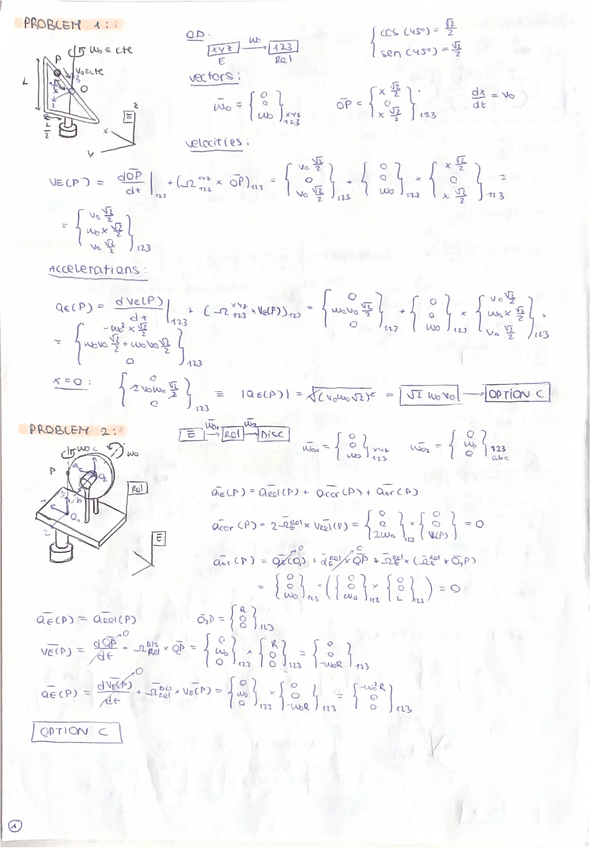 PROBLEM 1:
ω₀ ≡ cte
P
v₀ ≡ cte
O
L
L/2
E
x
y
z
xyz →ω₀ 123
E Rel
{ cos (45°) = √2/2
sen (45°) = √2/2
vectors:
ω̄₀ = {0 0 ω₀}xyz 123
OP̄ = {x √2/2 0 x √2/2}123
dx/dt = v₀
velocities:
VE(P) = dOP̄/dt |123 + (Ω̄ xyz 123 × OP̄)123 = {v₀ √2/2 0 v₀ √2/2}123 + {0 0 ω₀}123 × {x √2/2 0 x √2/2}123 =
= {v₀ √2/2 ω₀x √2/2 v₀ √2/2}123
Accelerations:
aE(P) = dVE(P)/dt |123 + (Ω̄ xyz 123 × VE(P))123 = {0 ω₀v₀ √2/2 0}123 + {0 0 ω₀}123 × {v₀ √2/2 ω₀x √2/2 v₀ √2/2}123 =
= {-ω₀² x √2/2 ω₀v₀ √2/2 + ω₀v₀ √2/2 0}123
x=0: {0 2 v₀ω₀ √2/2 0}123 ≡ |aE(P)| = √(v₀ω₀√2)² = √2 ω₀v₀ → OPTION C
PROBLEM 2:
E →ω̄₀₁ Rel →ω̄₀₂ DISC
ω̄₀₁ = {0 0 ω₀}xyz 123
ω̄₀₂ = {0 ω₀ 0}123 abc
ω₀
P
Rel
E
āE(P) = āRel(P) + ācor(P) + āar(P)
ācor(P) = 2·Ω̄ Rel E × VRel(P) = {0 0 2ω₀}123 × {0 0 V(P)} = 0
= {0 0 ω₀}123 × ({0 0 ω₀}123 × {0 0 L}123) = 0
āE(P) = āRel(P)
O₂P = {R 0 0}123
V̄E(P) = dOP̄/dt + Ω̄ Dis Rel × OP̄ = {0 ω₀ 0}123 × {R 0 0}123 = {0 0 -ω₀R}123
āE(P) = dV̄E(P)/dt + Ω̄ Dis Rel × V̄E(P) = {0 ω₀ 0}123 × {0 0 -ω₀R}123 = {-ω₀²R 0 0}123
OPTION C
1